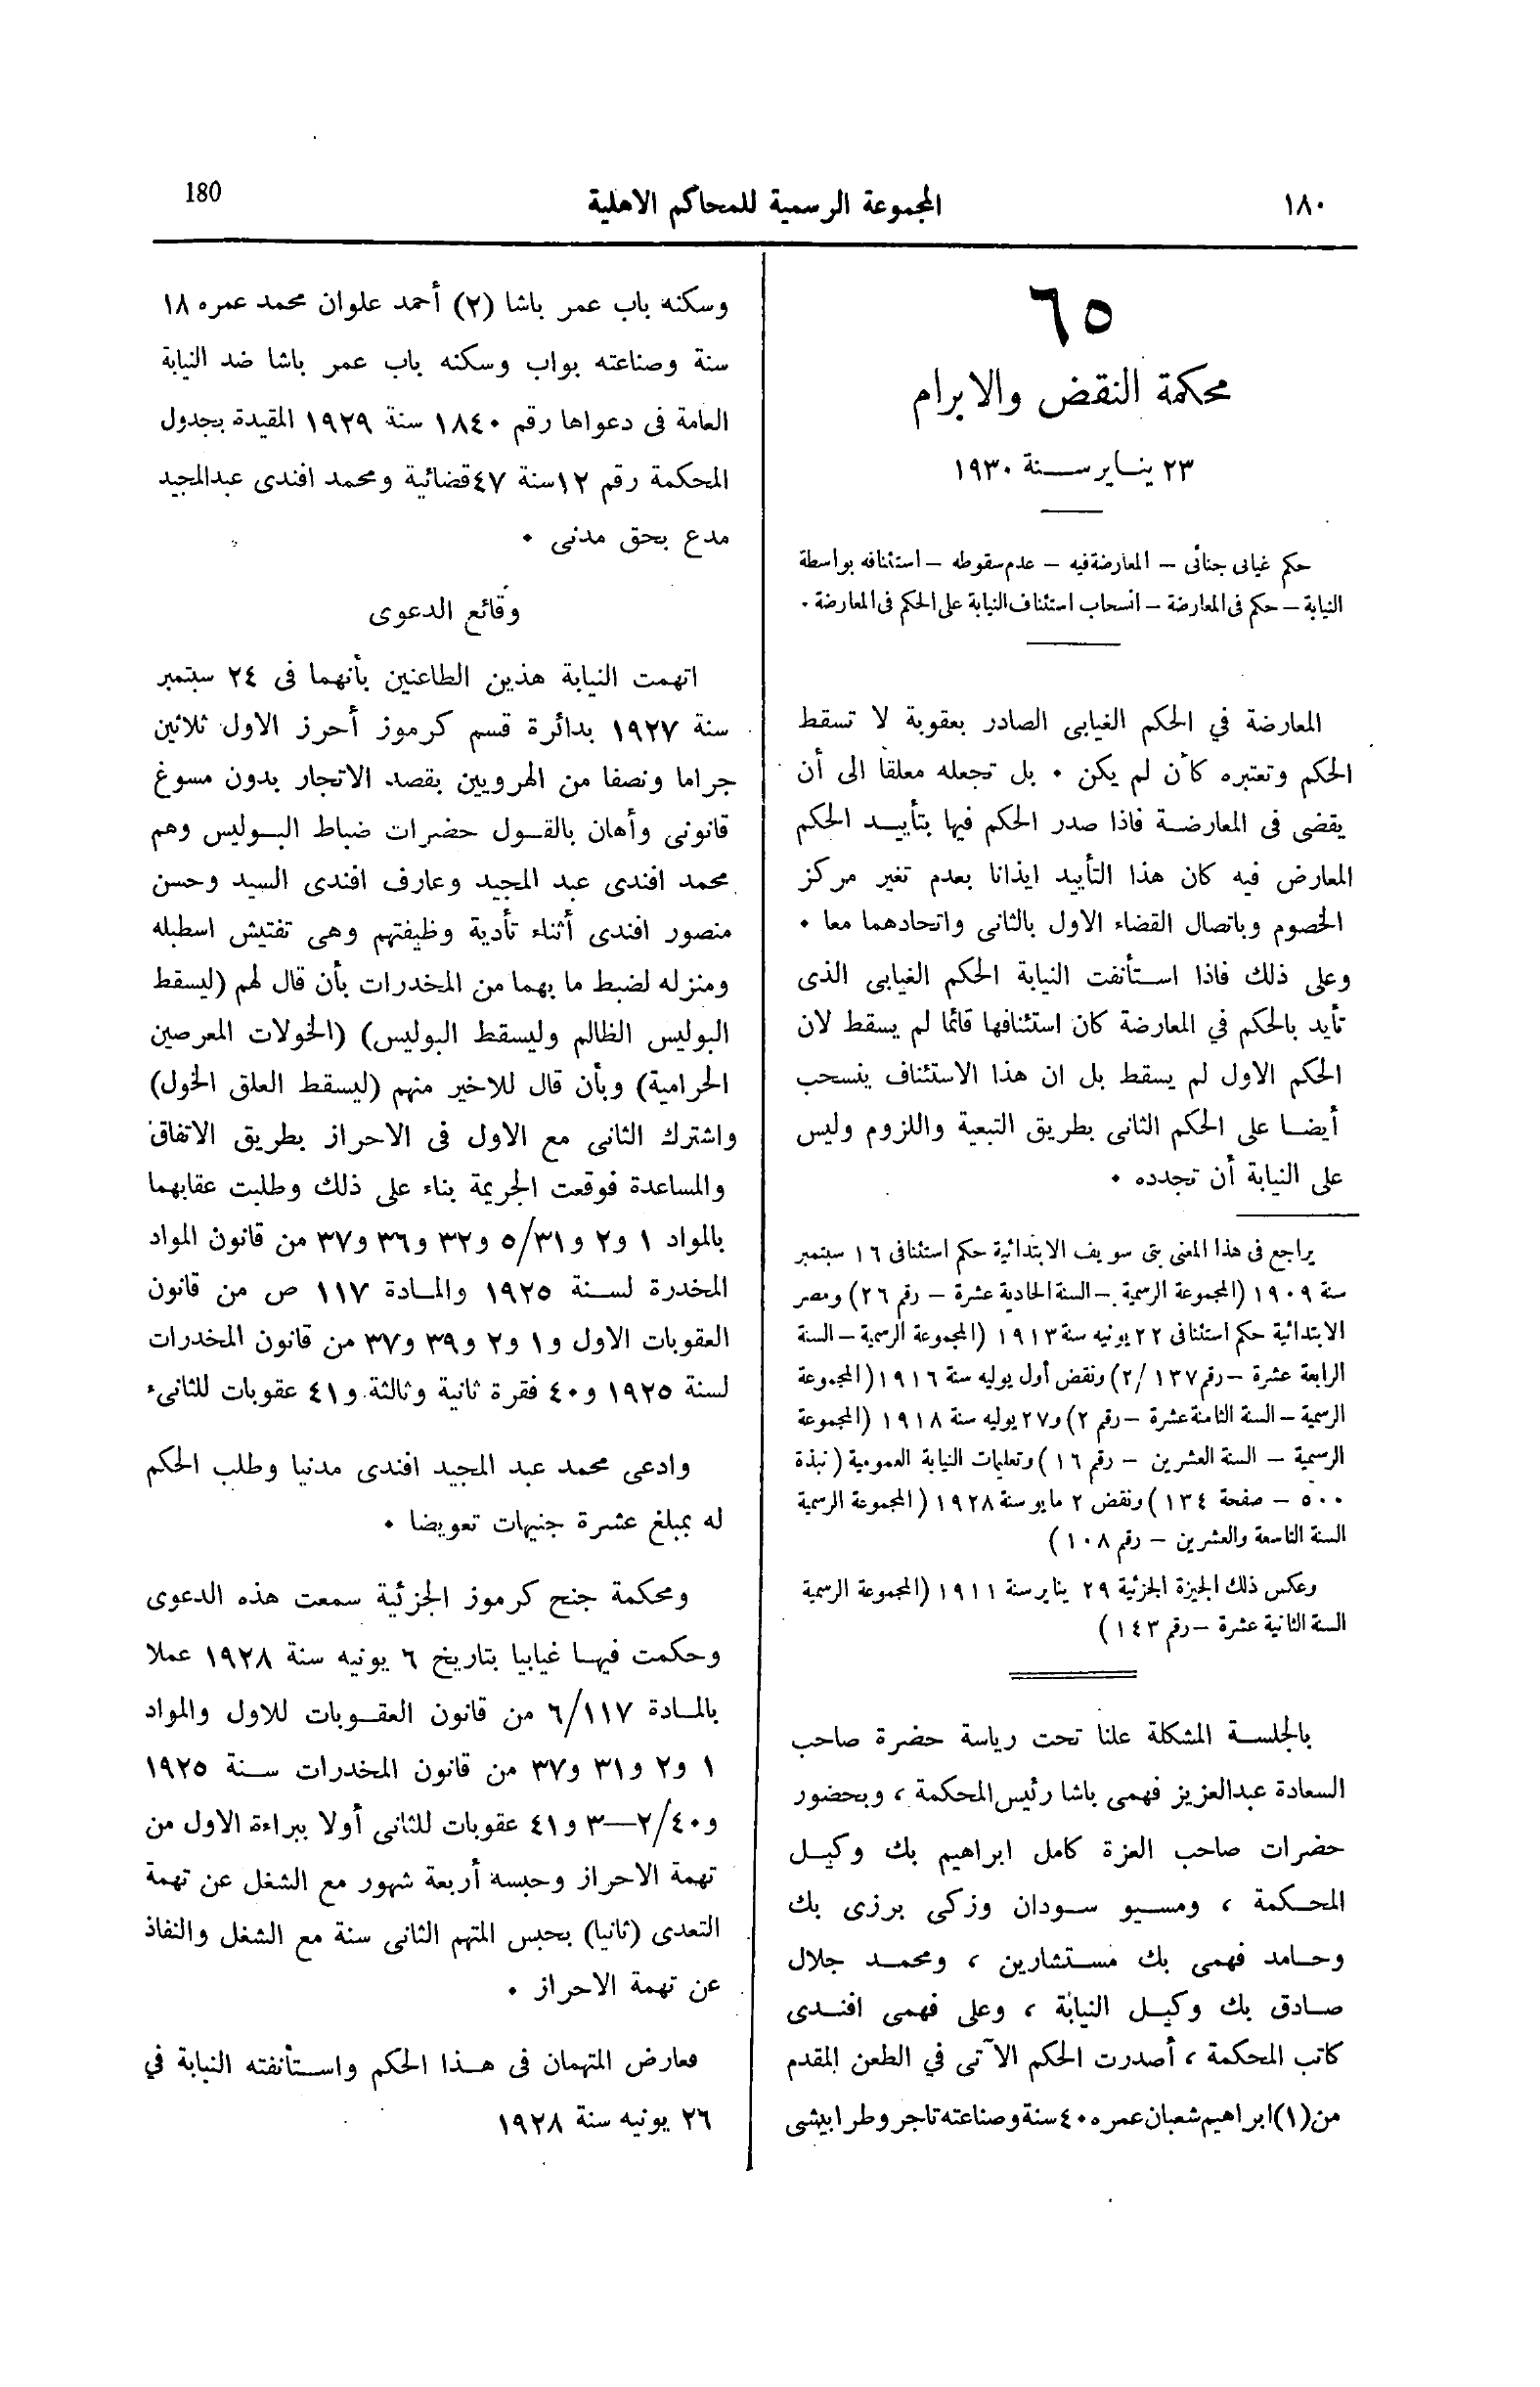 ١٨٠
المجموعة الرسمية للمحاكم الاهلية
180
٦٥
محكمة النقض والابرام
٢٣ ينـاير سـنة ١٩٣٠
حكم غيابى جنائى – المعارضة فيه – عدم سقوطه – استئنافه بواسطة
النيابة – حكم فى المعارضة – انسحاب استئناف النيابة على الحكم فى المعارضة .
المعارضة في الحكم الغيابى الصادر بعقوبة لا تسقط
الحكم وتعتبره كأن لم يكن . بل تجعله معلقا الى أن
يقضى فى المعارضة فاذا صدر الحكم فيها بتأييـد الحكم
المعارض فيه كان هذا التأييد ايذانا بعدم تغير مركز
الخصوم وباتصال القضاء الاول بالثانى واتحادهما معا .
وعلى ذلك فاذا استأنفت النيابة الحكم الغيابى الذى
تأيد بالحكم في المعارضة كان استئنافها قائما لم يسقط لان
الحكم الاول لم يسقط بل ان هذا الاستئناف ينسحب
أيضـا على الحكم الثانى بطريق التبعية واللزوم وليس
على النيابة أن تجدده .
يراجع فى هذا المعنى بنى سويف الابتدائية حكم استئنافى ١٦ سبتمبر
سنة ١٩٠٩ (المجموعة الرسمية – السنة الحادية عشرة – رقم ٢٦) ومصر
الابتدائية حكم استئنافى ٢٢ يونيه سنة ١٩١٣ (المجموعة الرسمية – السنة
الرابعة عشرة – رقم ١٣٧/٢) ونقض أول يوليه سنة ١٩١٦ (المجموعة
الرسمية – السنة الثامنة عشرة – رقم ٢) و٢٧ يوليه سنة ١٩١٨ (المجموعة
الرسمية – السنة العشرين – رقم ١٦) وتعليمات النيابة العمومية (نبذة
٥٠٠ – صفحة ١٣٤) ونقض ٢ مايو سنة ١٩٢٨ (المجموعة الرسمية
السنة التاسعة والعشرين – رقم ١٠٨)
وعكس ذلك الجيزة الجزئية ٢٩ يناير سنة ١٩١١ (المجموعة الرسمية
السنة الثانية عشرة – رقم ١٤٣)
بالجلسـة المشكلة علنا تحت رياسة حضرة صاحب
السعادة عبدالعزيز فهمى باشا رئيس المحكمة ، وبحضور
حضرات صاحب العزة كامل ابراهيم بك وكيـل
المحـكمة ، ومسـيو سـودان وزكى برزى بك
وحـامد فهمى بك مسـتشارين ، ومحمـد جلال
صـادق بك وكيـل النيابة ، وعلى فهمى افنـدى
كاتب المحكمة ، أصدرت الحكم الآتى في الطعن المقدم
من (١) ابراهيم شعبان عمره ٤٠ سنة وصناعته تاجر وطرابيشى
وسكنه باب عمر باشا (٢) أحمد علوان محمد عمره ١٨
سنة وصناعته بواب وسكنه باب عمر باشا ضد النيابة
العامة فى دعواها رقم ١٨٤٠ سنة ١٩٢٩ المقيدة بجدول
المحكمة رقم ١٢ سنة ٤٧ قضائية ومحمد افندى عبدالمجيد
مدع بحق مدنى .
وقائع الدعوى
اتهمت النيابة هذين الطاعنين بأنهما فى ٢٤ سبتمبر
سنة ١٩٢٧ بدائرة قسم كرموز أحرز الاول ثلاثين
جراما ونصفا من الهرويين بقصد الاتجار بدون مسوغ
قانونى وأهان بالقـول حضرات ضباط البـوليس وهم
محمد افندى عبد المجيد وعارف افندى السيد وحسن
منصور افندى أثناء تأدية وظيفتهم وهى تفتيش اسطبله
ومنزله لضبط ما بهما من المخدرات بأن قال لهم (ليسقط
البوليس الظالم وليسقط البوليس) (الخولات المعرصين
الحرامية) وبأن قال للاخير منهم (ليسقط العلق الخول)
واشترك الثانى مع الاول فى الاحراز بطريق الاتفاق
والمساعدة فوقعت الجريمة بناء على ذلك وطلبت عقابهما
بالمواد ١ و٢ و٥/٣١ و٣٢ و٣٦ و٣٧ من قانون المواد
المخدرة لسـنة ١٩٢٥ والمـادة ١١٧ ص من قانون
العقوبات الاول و١ و٢ و٣٩ و٣٧ من قانون المخدرات
لسنة ١٩٢٥ و٤٠ فقرة ثانية وثالثة و٤١ عقوبات للثانى،
وادعى محمد عبد المجيد افندى مدنيا وطلب الحكم
له بمبلغ عشرة جنيهات تعويضا .
ومحكمة جنح كرموز الجزئية سمعت هذه الدعوى
وحكمت فيهـا غيابيا بتاريخ ٦ يونيه سنة ١٩٢٨ عملا
بالمـادة ٦/١١٧ من قانون العقـوبات للاول والمواد
١ و٢ و٣١ و٣٧ من قانون المخدرات سـنة ١٩٢٥
و٢/٤٠—٣ و٤١ عقوبات للثانى أولا ببراءة الاول من
تهمة الاحراز وحبسه أربعة شهور مع الشغل عن تهمة
التعدى (ثانيا) بحبس المتهم الثانى سنة مع الشغل والنفاذ
عن تهمة الاحراز .
فعارض المتهمان فى هـذا الحكم واسـتأنفته النيابة في
٢٦ يونيه سنة ١٩٢٨